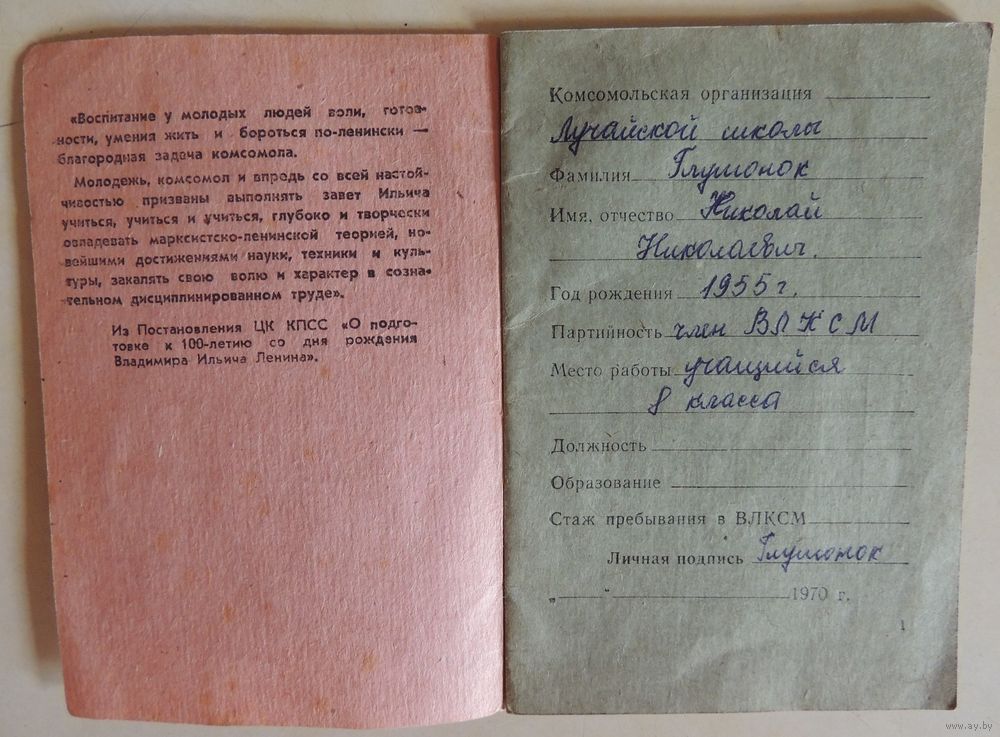 «Воспитание у молодых людей воли, готов-
ности, умения жить и бороться по-ленински —
благородная задача комсомола.
Молодежь, комсомол и впредь со всей настой-
чивостью призваны выполнять завет Ильича
учиться, учиться и учиться, глубоко и творчески
овладевать марксистско-ленинской теорией, но-
вейшими достижениями науки, техники и куль-
туры, закалять свою волю и характер в созна-
тельном дисциплинированном труде».
Из Постановления ЦК КПСС «О подго-
товке к 100-летию со дня рождения
Владимира Ильича Ленина».
Комсомольская организация
Лучайской школы
Фамилия Глушонок
Имя, отчество Николай
Николаевич.
Год рождения 1955 г.
Партийность член ВЛКСМ
Место работы учащийся
8 класса
Должность
Образование
Стаж пребывания в ВЛКСМ
Личная подпись Глушонок
„ “ 1970 г.
www.ay.by